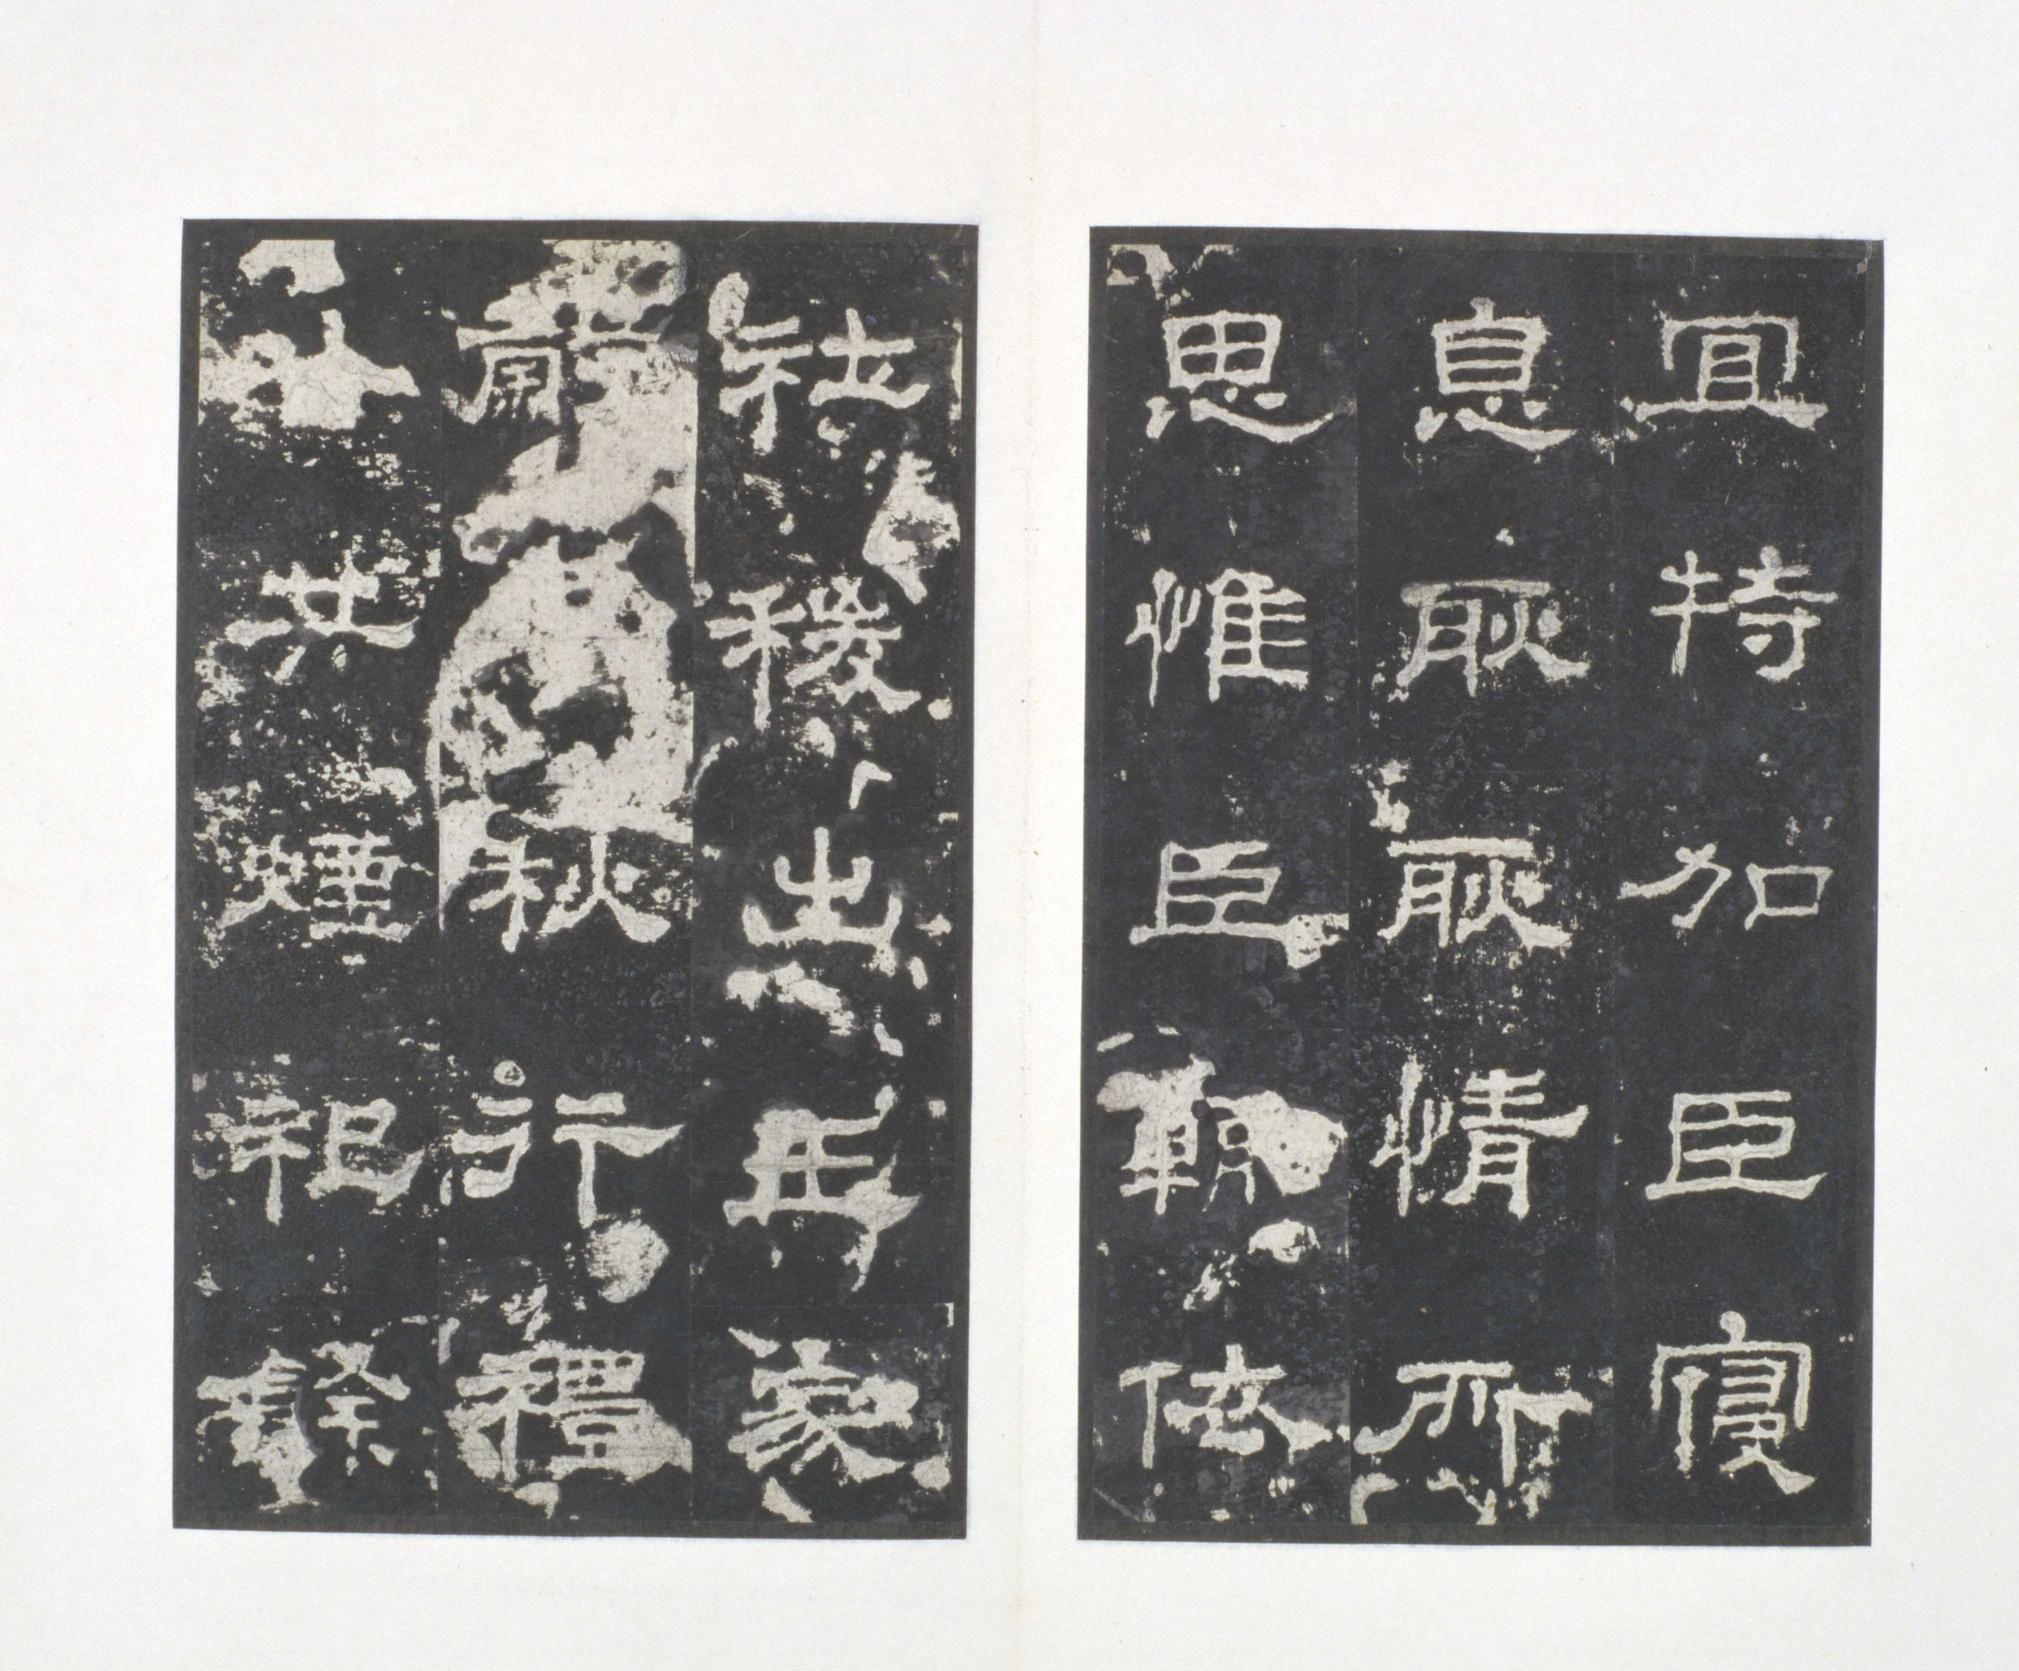 宜特加臣寑
息耿耿情所
思惟臣輒依
社稷出王家
穀秋行禮
以共煙祀餘